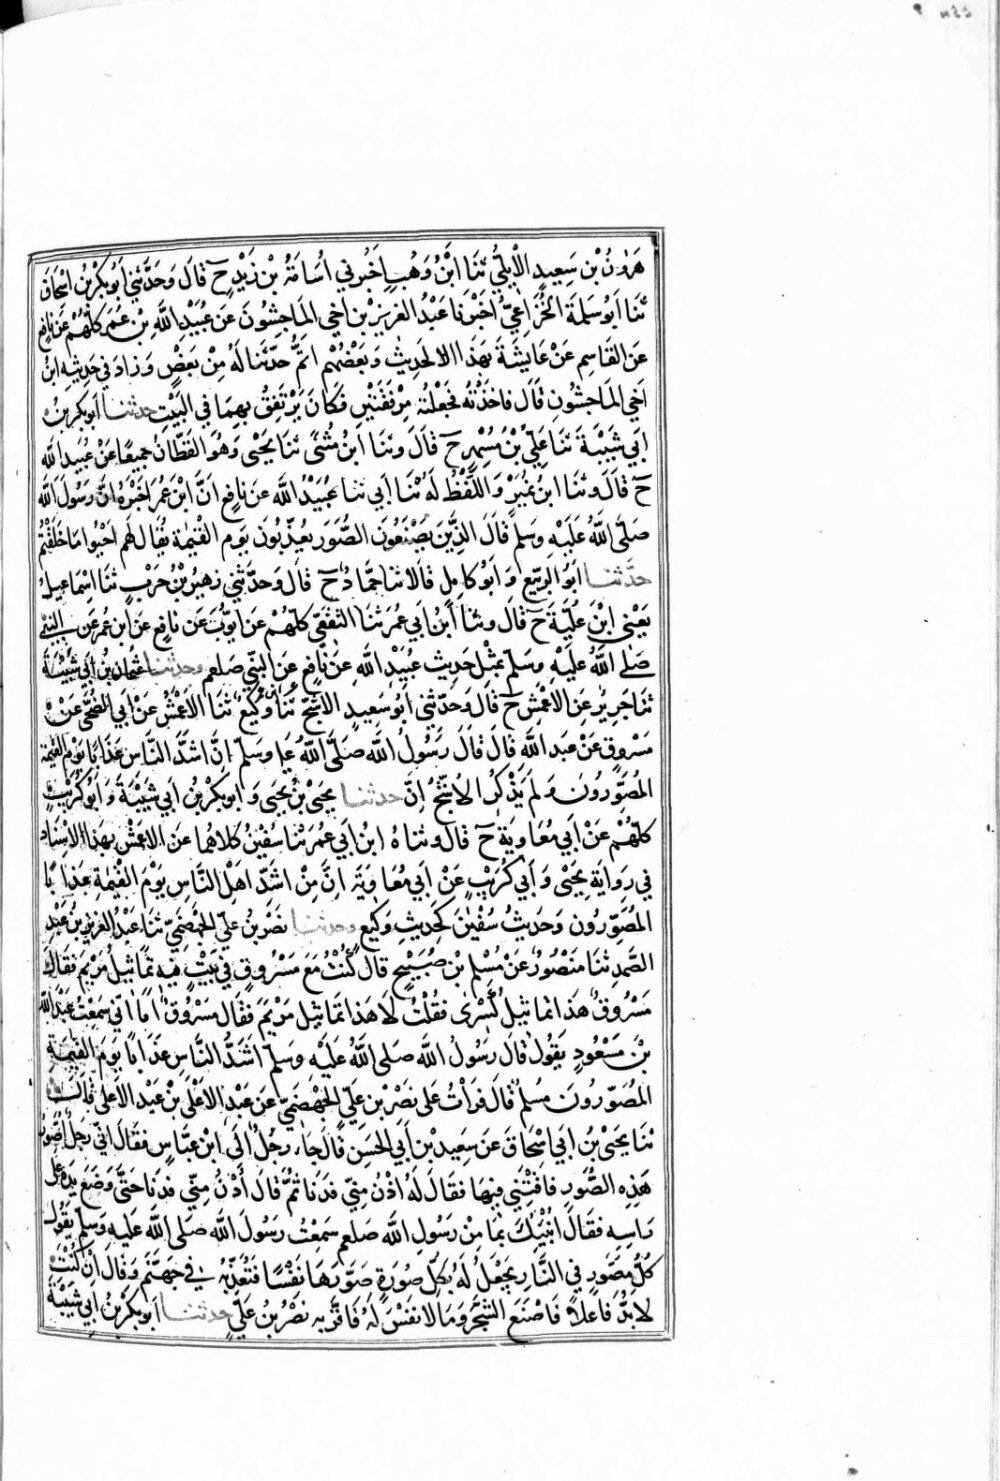 هَرُونُ بْنُ سَعِيدٍ الْاَيْلِيُّ ثَنَا ابْنُ وَهْبٍ اَخْبَرَنِي اُسَامَةُ بْنُ زَيْدٍ ح قَالَ وَحَدَّثَنِي اَبُو بَكْرِ بْنُ اِسْحَاقَ
ثَنَا اَبُو سَلَمَةَ الْخُزَاعِيُّ اَخْبَرَنَا عَبْدُ الْعَزِيزِ بْنُ اَخِي الْمَاجِشُونَ عَنْ عُبَيْدِ اللَّهِ بْنِ عُمَرَ كُلُّهُمْ عَنْ نَافِعٍ
عَنِ الْقَاسِمِ عَنْ عَايِشَةَ بِهَذَا الْحَدِيثِ وَبَعْضُهُمْ اَتَمُّ حَدِّثَنَا لَهُ مِنْ بَعْضٍ وَزَادَ فِي حَدِيثِهِ ابْنُ
اَخِي الْمَاجِشُونِ قَالَ فَاَخَذْتُهُ فَجَعَلْتُهُ مِرْفَقَتَيْنِ فَكَانَ يَرْتَفِقُ بِهِمَا فِي الْبَيْتِ حدثنا اَبُو بَكْرِ بْنُ
اَبِي شَيْبَةَ ثَنَا عَلِيُّ بْنُ مُسْهِرٍ ح قَالَ وَثَنَا ابْنُ مُثَنًّى ثَنَا يَحْيَى وَهُوَ الْقَطَّانُ جَمِيعًا عَنْ عُبَيْدِ اللَّهِ
ح قَالَ وَثَنَا ابْنُ نُمَيْرٍ وَاللَّفْظُ لَهُ ثَنَا اَبِي ثَنَا عُبَيْدُ اللَّهِ عَنْ نَافِعٍ اَنَّ ابْنَ عُمَرَ اَخْبَرَهُ اَنَّ رَسُولَ اللَّهِ
صَلَّى اللَّهُ عَلَيْهِ وَسَلَّمَ قَالَ الَّذِينَ يَصْنَعُونَ الصُّوَرَ يُعَذَّبُونَ يَوْمَ الْقِيٰمَةِ يُقَالُ لَهُمْ اَحْيُوا مَا خَلَقْتُمْ
حدَّثنا اَبُو الرَّبِيعِ وَاَبُو كَامِلٍ قَالَا ثَنَا حَمَّادٌ ح قَالَ وَحَدَّثَنِي زُهَيْرُ بْنُ حَرْبٍ ثَنَا اِسْمَاعِيلُ
يَعْنِي ابْنَ عُلَيَّةَ ح قَالَ وَثَنَا ابْنُ اَبِي عُمَرَ ثَنَا الثَّقَفِيُّ كُلُّهُمْ عَنْ اَيُّوبَ عَنْ نَافِعٍ عَنِ ابْنِ عُمَرَ عَنِ النَّبِيِّ
صَلَّى اللَّهُ عَلَيْهِ وَسَلَّمَ بِمِثْلِ حَدِيثِ عُبَيْدِ اللَّهِ عَنْ نَافِعٍ عَنِ النَّبِيِّ صلعم وحدثنا عُثْمَانُ بْنُ اَبِي شَيْبَةَ
ثَنَا جَرِيرٌ عَنِ الْاَعْمَشِ ح قَالَ وَحَدَّثَنِي اَبُو سَعِيدٍ الْاَشَجُّ ثَنَا وَكِيعٌ ثَنَا الْاَعْمَشُ عَنْ اَبِي الضُّحَى عَنْ
مَسْرُوقٍ عَنْ عَبْدِ اللَّهِ قَالَ قَالَ رَسُولُ اللَّهِ صَلَّى اللَّهُ عَلَيهِ وَسَلَّمَ اِنَّ اَشَدَّ النَّاسِ عَذَابًا يَوْمَ الْقِيٰمَةِ
الْمُصَوِّرُونَ وَلَمْ يَذْكُرِ الْاَشَجُّ اِنَّ حدثنا يَحْيَى بْنُ يَحْيَى وَاَبُو بَكْرِ بْنُ اَبِي شَيْبَةَ وَاَبُو كُرَيْبٍ
كُلُّهُمْ عَنْ اَبِي مُعَاوِيَةَ ح قَالَ وَثَنَاهُ ابْنُ اَبِي عُمَرَ ثَنَا سُفْيٰنُ كِلَاهُمَا عَنِ الْاَعْمَشِ بِهَذَا الْاِسْنَادِ
فِي رِوَايَةِ يَحْيَى وَاَبِي كُرَيْبٍ عَنْ اَبِي مُعَاوِيَةَ اِنَّ مِنْ اَشَدِّ اَهْلِ النَّاسِ يَوْمَ الْقِيٰمَةِ عَذَابًا
الْمُصَوِّرُونَ وَحَدِيثُ سُفْيٰنَ كَحَدِيثِ وَكِيعٍ وحدثنا نَصْرُ بْنُ عَلِيٍّ الْجَهْضَمِيُّ ثَنَا عَبْدُ الْعَزِيزِ بْنُ عَبْدِ
الصَّمَدِ ثَنَا مَنْصُورٌ عَنْ مُسْلِمِ بْنِ صُبَيْحٍ قَالَ كُنْتُ مَعَ مَسْرُوقٍ فِي بَيْتٍ فِيهِ تَمَاثِيلُ مَرْيَمَ فَقَالَ
مَسْرُوقٌ هَذَا تَمَاثِيلُ كِسْرَى فَقُلْتُ لَا هَذَا تَمَاثِيلُ مَرْيَمَ فَقَالَ مَسْرُوقٌ اَمَا اِنِّي سَمِعْتُ عَبْدَ اللَّهِ
بْنَ مَسْعُودٍ يَقُولُ قَالَ رَسُولُ اللَّهِ صَلَى اللَّهُ عَلَيْهِ وَسَلَّمَ اَشَدُّ النَّاسِ عَذَابًا يَوْمَ الْقِيٰمَةِ
الْمُصَوِّرُونَ مُسْلِمٌ قَالَ قَرَاْتُ عَلَى نَصْرِ بْنِ عَلِيٍّ الْجَهْضَمِيِّ عَنْ عَبْدِ الْاَعْلَى بْنِ عَبْدِ الْاَعْلَى قَالَ
ثَنَا يَحْيَى بْنُ اَبِي اِسْحَاقَ عَنْ سَعِيدِ بْنِ اَبِي الْحَسَنِ قَالَ جَاءَ رَجُلٌ اِلَى ابْنِ عَبَّاسٍ فَقَالَ اِنِّي رَجُلٌ اُصَوِّرُ
هَذِهِ الصُّوَرَ فَافْتِنِي فِيهَا فَقَالَ لَهُ ادْنُ مِنِّي فَدَنَا ثُمَّ قَالَ اُدْنُ مِنِّي فَدَنَا حَتَّى وَضَعَ يَدَهُ عَلَى
رَاسِهِ فَقَالَ اُنَبِّئُكَ بِمَا مِنْ رَسُولِ اللَّهِ صلعم سَمِعْتُ رَسُولَ اللَّهِ صَلَى اللَّهُ عَلَيهِ وَسَلَّمَ يَقُولُ
كُلُّ مُصَوِّرٍ فِي النَّارِ يَجْعَلُ لَهُ بِكُلِّ صُورَةٍ صَوَّرَهَا نَفْسًا فَتُعَذِّبُهُ فِي جَهَنَّمَ وَقَالَ اِنْ كُنْتَ
لَابُدَّ فَاعِلًا فَاصْنَعِ الشَّجَرَ وَمَا لَا نَفْسَ لَهُ فَاَقَرَّ بِهِ نَصْرُ بْنُ عَلِيٍّ حدثنا اَبُو بَكْرِ بْنُ اَبِي شَيْبَةَ